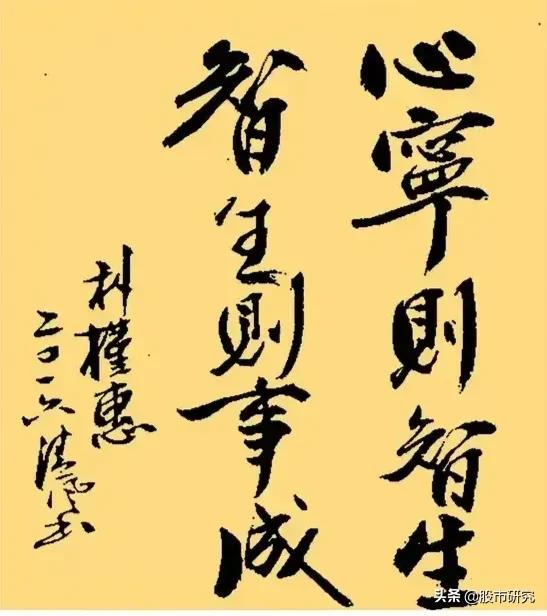 心寧則智生
智生則事成
朴槿惠
二〇一六
头条 @股市研究